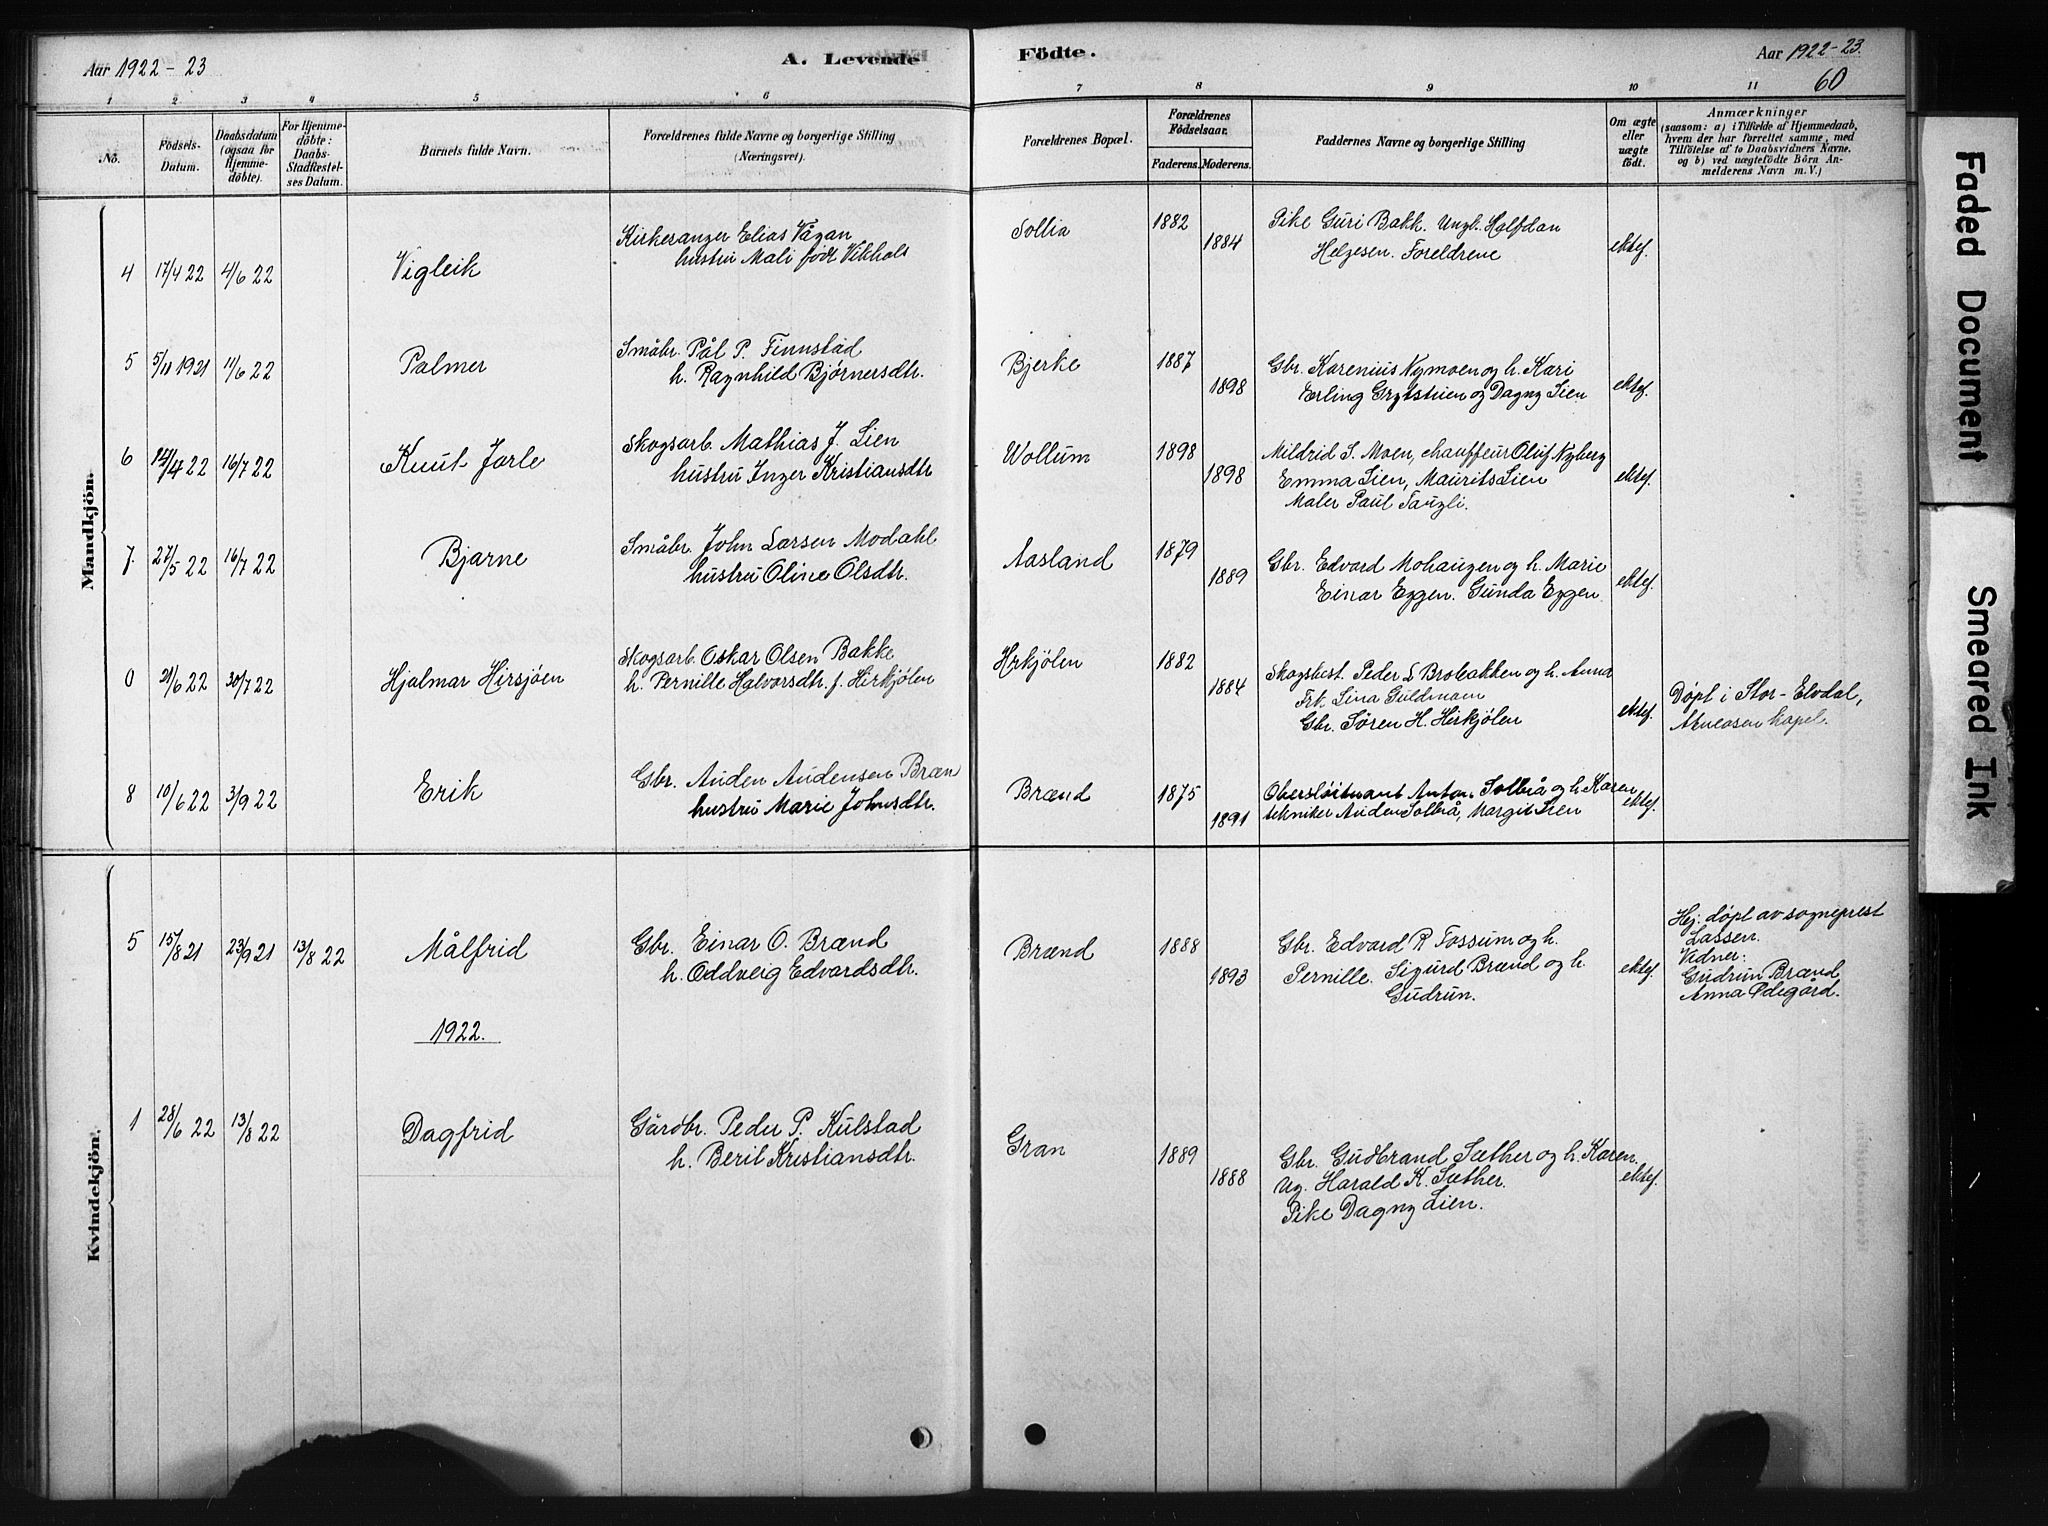 Aar 1922-23
A. Levende
Fødte.
Aar 1922-23.
60
1 2 3 4 5 6 7 8 9 10 11
No.
Födsels-
Datum.
Daabsdatum
(ogsaa for
Hjemme-
döbte).
For Hjemme-
döbte:
Daabs-
Stadfæstel-
ses Datum.
Barnets fulde Navn.
Forældrenes fulde Navne og borgerlige Stilling
(Næringsvei).
Forældrenes Bopæl.
Forældrenes
Födselsaar.
Faderens. Moderens.
Faddernes Navne og borgerlige Stilling
Om ægte
eller
uægte
födt.
Anmærkninger
(saasom: a) i Tilfælde af Hjemmedaab,
hvem der har forrettet samme, med
Tilföielse af to Daabsvidners Navne.
og b) ved uægtefödte Börn An-
melderens Navn m. V.)
Mandkjön.
4 17/4 22 4/6 22 Vigleik
Kirkesanger Elias Vågan
hustru Mali født Vikhals
Sollia 1882 1884
Pike Guri Bakk. Ungk. Halfdan
Helgesen. Foreldrene
ektef.
5 5/11 1921 11/6 22 Palmer
Småbr. Pål P. Finnstad
h. Ragnhild Bjørnersdtr.
Bjerke 1887 1898
Gbr. Karenius Nymoen og h. Kari
Erling Grytstuen og Dagny Lien
ektef.
6 14/4 22 16/7 22 Knut Jarle
Skogsarb. Mathias J. Lien
hustru Inger Kristiansdtr
Wollum 1898 1898
Mildrid S. Moen, chauffeur Oluf Nyberg
Emma Lien, Maurits Lien
Maler Paul Taugli.
ektef.
7. 27/5 22 16/7 22 Bjarne
Småbr. John Larsen Modahl
hustru Oline Olsdtr.
Aasland 1879 1889
Gbr. Edvard Mohaugen og h. Marie
Einar Eggen. Gunda Eggen.
ektef.
0 21/6 22 30/7 22 Hjalmar Hirsjøen
Skogsarb. Oskar Olsen Bakke
h. Pernille Halvorsdtr. f. Hirkjølen
Hirkjølen 1882 1884
Skogsbest. Peder L Brobakken og h. Anna
Frk. Lina Guldmoen
Gbr. Søren H. Hirkjølen
ektef.
Døpt i Stor-Elvdal,
Atneosen kapel.
8 10/6 22 3/9 22 Erik
Gbr. Auden Audensen Bræn
hustru Marie Johnsdtr.
Brænd 1875 1891
Obersløitnant Anton Solbrå og h. Karen
tekniker Auden Solbrå, Margit Lien
ektef.
Kvindekjön.
5 15/8 21 23/9 21 13/8 22 Målfrid
Gbr. Einar O. Brænd
h. Oddveig Edvardsdtr.
Brænd 1888 1893
Gbr. Edvard R Fossum og h.
Pernille. Sigurd Brænd og h.
Gudrun.
ektef.
Hj. døpt av sogneprest
Lassen.
Vidner:
Gudrun Brænd
Anna Ødegård.
1922.
1 28/6 22 13/8 22 Dagfrid
Gårdbr. Peder P. Kulstad
h. Berit Kristiansdtr.
Gran 1889 1888
Gbr. Gudbrand Sæther og h. Karen.
Ug. Harald K. Sæther.
Pike Dagny Lien.
ektef.
Faded Document
Smeared Ink